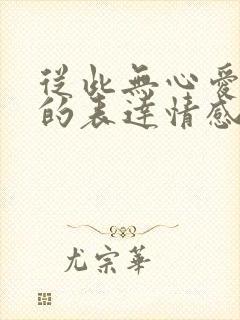 從此無心愛
的表達情感
尤宗華